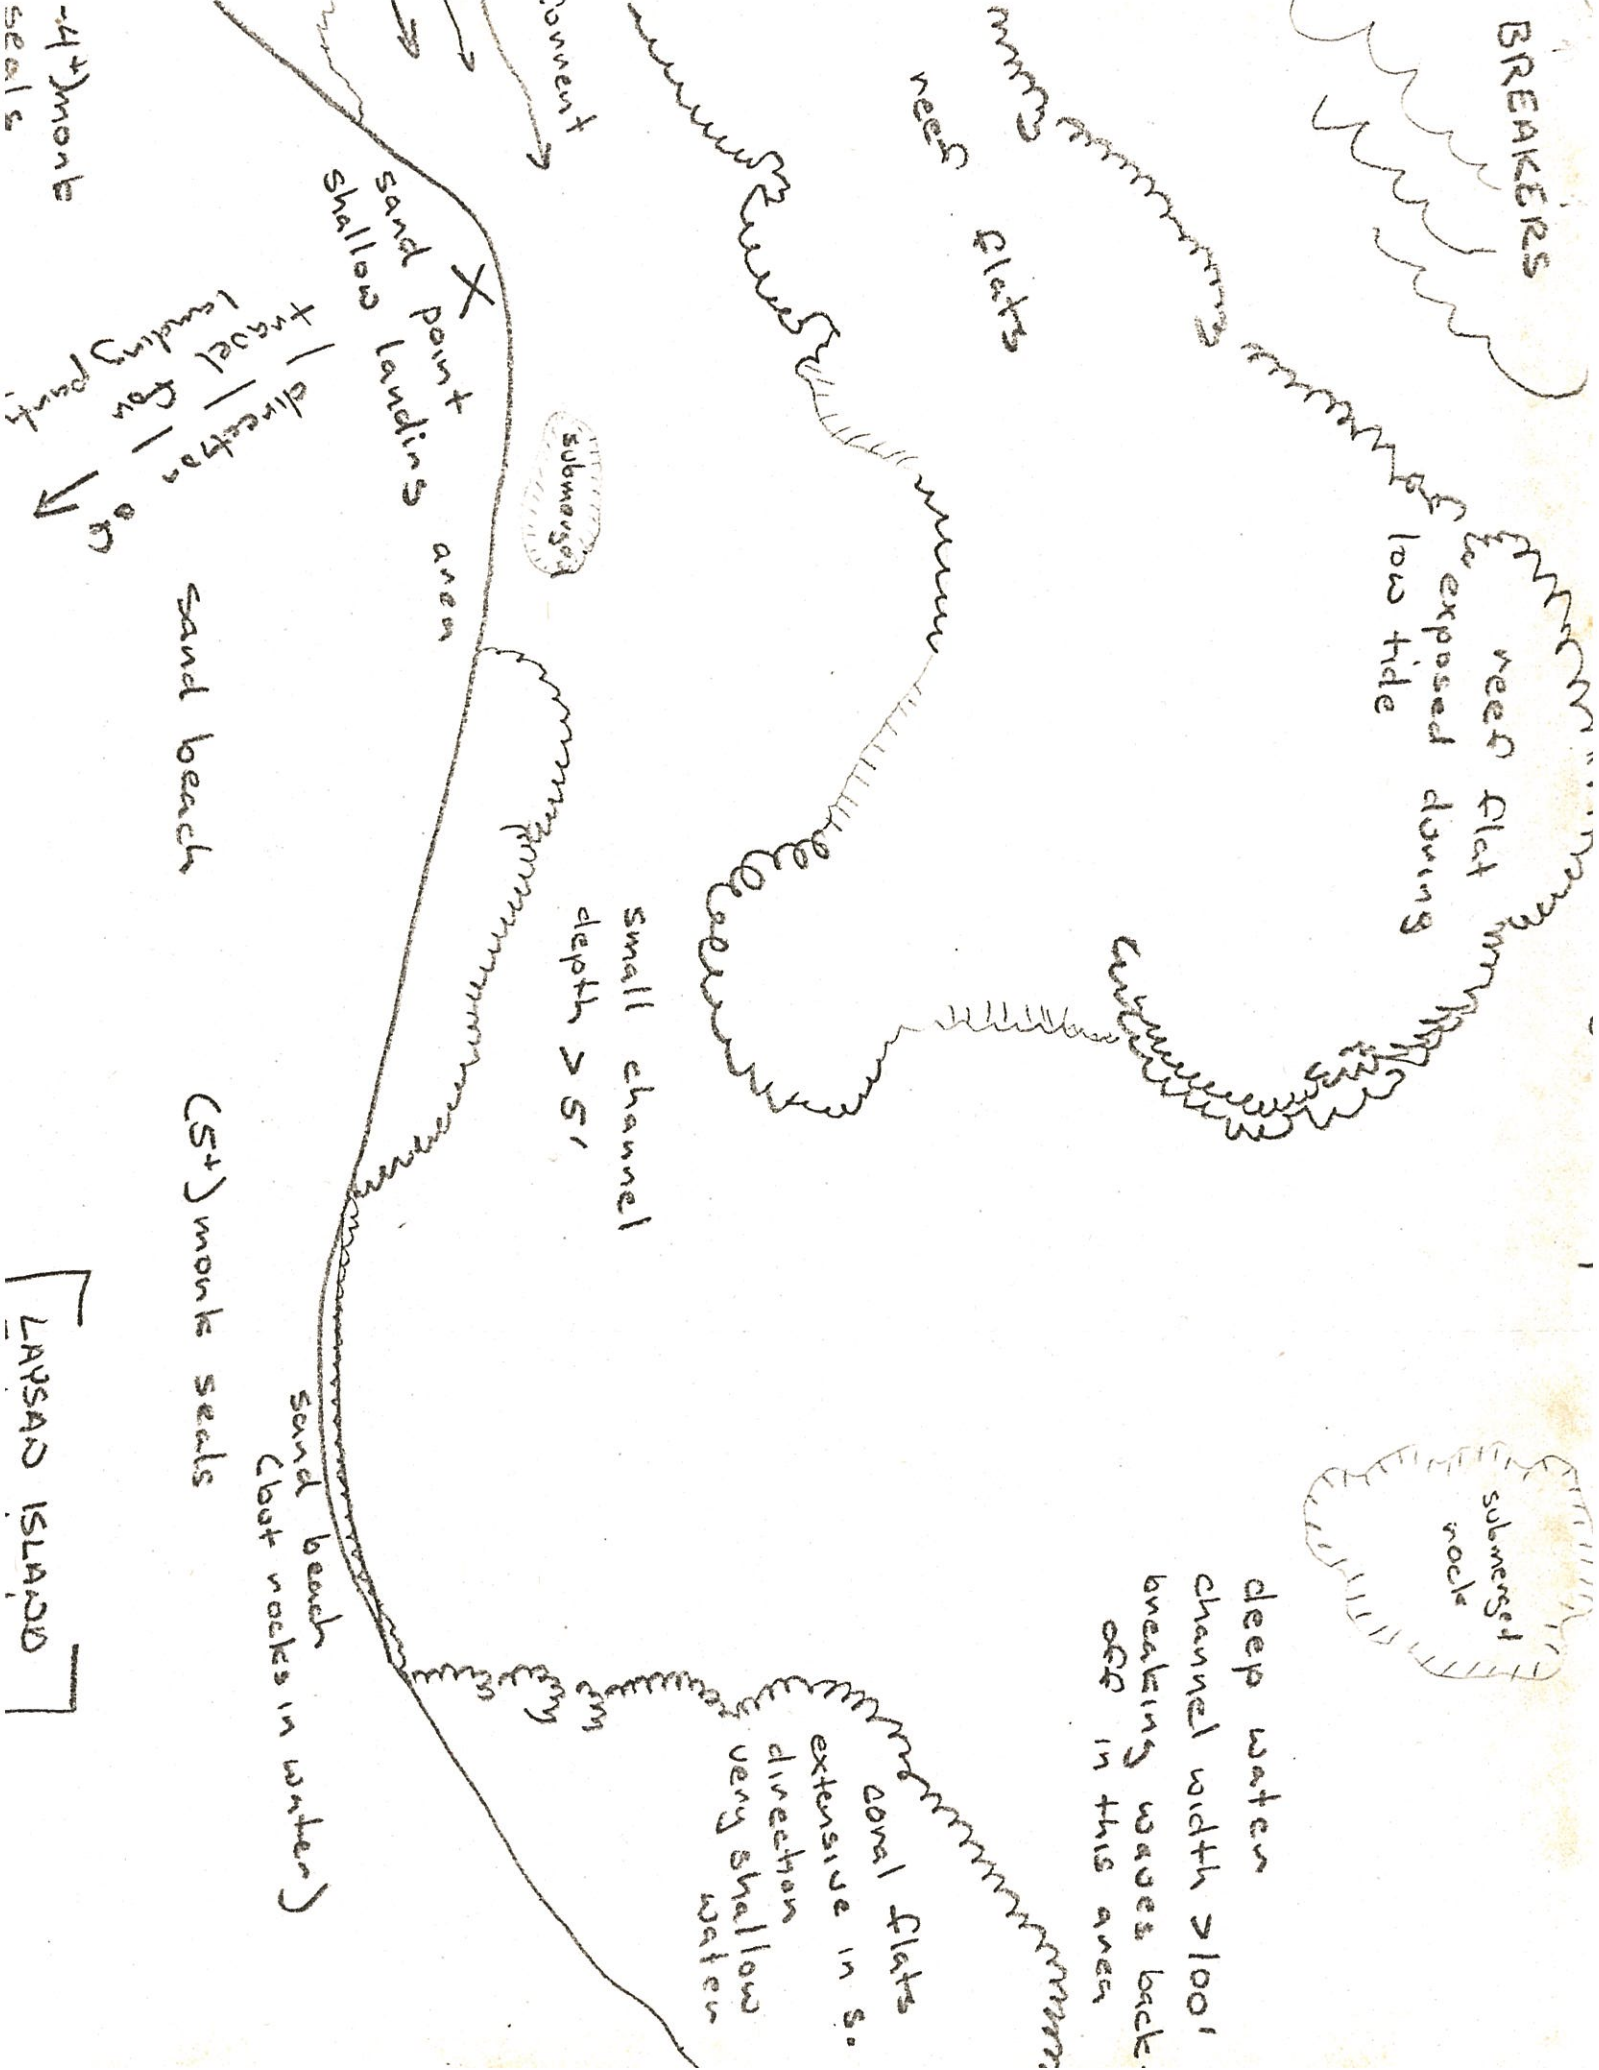 BREAKERS
reef flats
reef flat
exposed during
low tide
submerged
rock
deep water
channel width >100'
breaking waves back
off in this area
coral flats
extensive in s.
direction
very shallow
water
small channel
depth > 5'
submerged
X
sand point
shallow landing area
travel direction
for
landing point
on
sand beach
(5+) monk seals
sand beach
(but rocks in water)
-4+) monk
seals
LAYSAN ISLAND